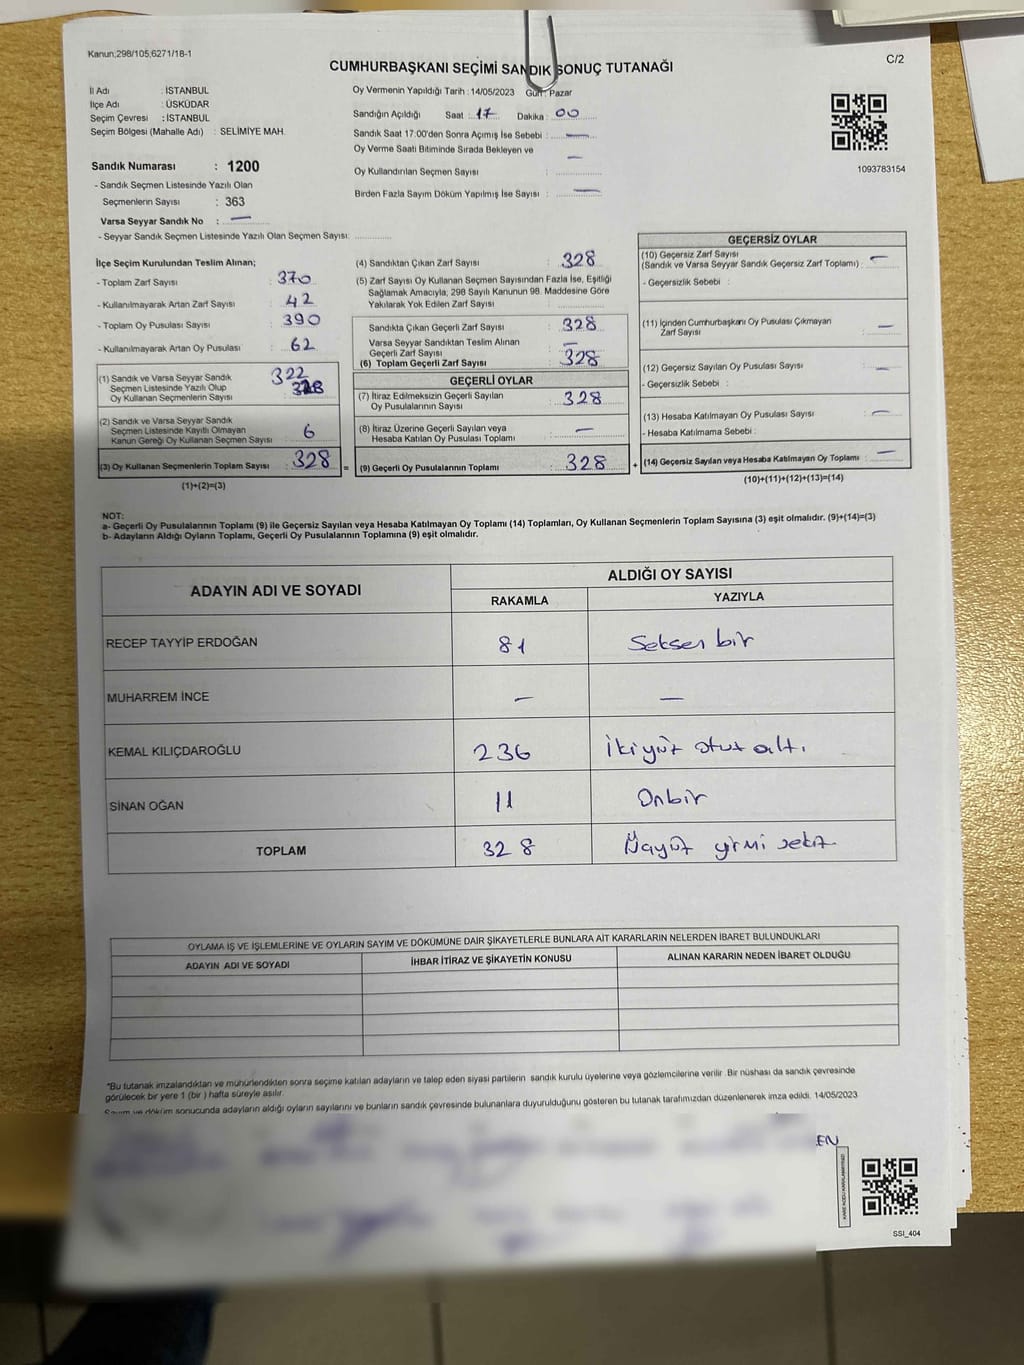 Kanun;298/105;6271/18-1
C/2
CUMHURBAŞKANI SEÇİMİ SANDIK SONUÇ TUTANAĞI
İl Adı : İSTANBUL
İlçe Adı : ÜSKÜDAR
Seçim Çevresi : İSTANBUL
Seçim Bölgesi (Mahalle Adı) : SELİMİYE MAH.
Sandık Numarası : 1200
- Sandık Seçmen Listesinde Yazılı Olan
Seçmenlerin Sayısı : 363
Varsa Seyyar Sandık No : —
- Seyyar Sandık Seçmen Listesinde Yazılı Olan Seçmen Sayısı: ..............
Oy Vermenin Yapıldığı Tarih : 14/05/2023 Gün : Pazar
Sandığın Açıldığı Saat : 17 Dakika : 00
Sandık Saat 17:00'den Sonra Açımış İse Sebebi : —
Oy Verme Saati Bitiminde Sırada Bekleyen ve —
Oy Kullandırılan Seçmen Sayısı : ..............
Birden Fazla Sayım Döküm Yapılmış İse Sayısı : —
1093783154
İlçe Seçim Kurulundan Teslim Alınan;
- Toplam Zarf Sayısı : 370
- Kullanılmayarak Artan Zarf Sayısı : 42
- Toplam Oy Pusulası Sayısı : 390
- Kullanılmayarak Artan Oy Pusulası : 62
(1) Sandık ve Varsa Seyyar Sandık 322
Seçmen Listesinde Yazılı Olup 328
Oy Kullanan Seçmenlerin Sayısı
(2) Sandık ve Varsa Seyyar Sandık
Seçmen Listesinde Kayıtlı Olmayan
Kanun Gereği Oy Kullanan Seçmen Sayısı : 6
(3) Oy Kullanan Seçmenlerin Toplam Sayısı : 328 =
(1)+(2)=(3)
(4) Sandıktan Çıkan Zarf Sayısı : 328
(5) Zarf Sayısı Oy Kullanan Seçmen Sayısından Fazla İse, Eşitliği
Sağlamak Amacıyla; 298 Sayılı Kanunun 98. Maddesine Göre
Yakılarak Yok Edilen Zarf Sayısı : ..............
Sandıkta Çıkan Geçerli Zarf Sayısı : 328
Varsa Seyyar Sandıktan Teslim Alınan —
Geçerli Zarf Sayısı
(6) Toplam Geçerli Zarf Sayısı : 328
GEÇERLİ OYLAR
(7) İtiraz Edilmeksizin Geçerli Sayılan
Oy Pusulalarının Sayısı : 328
(8) İtiraz Üzerine Geçerli Sayılan veya
Hesaba Katılan Oy Pusulası Toplamı : —
(9) Geçerli Oy Pusulalarının Toplamı : 328 +
GEÇERSİZ OYLAR
(10) Geçersiz Zarf Sayısı
(Sandık ve Varsa Seyyar Sandık Geçersiz Zarf Toplamı) : —
- Geçersizlik Sebebi :
(11) İçinden Cumhurbaşkanı Oy Pusulası Çıkmayan
Zarf Sayısı : —
(12) Geçersiz Sayılan Oy Pusulası Sayısı : —
- Geçersizlik Sebebi :
(13) Hesaba Katılmayan Oy Pusulası Sayısı : —
- Hesaba Katılmama Sebebi :
(14) Geçersiz Sayılan veya Hesaba Katılmayan Oy Toplamı : —
(10)+(11)+(12)+(13)=(14)
NOT:
a- Geçerli Oy Pusulalarının Toplamı (9) ile Geçersiz Sayılan veya Hesaba Katılmayan Oy Toplamı (14) Toplamları, Oy Kullanan Seçmenlerin Toplam Sayısına (3) eşit olmalıdır. (9)+(14)=(3)
b- Adayların Aldığı Oyların Toplamı, Geçerli Oy Pusulalarının Toplamına (9) eşit olmalıdır.
ADAYIN ADI VE SOYADI ALDIĞI OY SAYISI
RAKAMLA YAZIYLA
RECEP TAYYİP ERDOĞAN 81 Seksen bir
MUHARREM İNCE — —
KEMAL KILIÇDAROĞLU 236 İkiyüz otuz altı
SİNAN OĞAN 11 Onbir
TOPLAM 328 Üçyüz yirmi sekiz
OYLAMA İŞ VE İŞLEMLERİNE VE OYLARIN SAYIM VE DÖKÜMÜNE DAİR ŞİKAYETLERLE BUNLARA AİT KARARLARIN NELERDEN İBARET BULUNDUKLARI
ADAYIN ADI VE SOYADI İHBAR İTİRAZ VE ŞİKAYETİN KONUSU ALINAN KARARIN NEDEN İBARET OLDUĞU
*Bu tutanak imzalandıktan ve mühürlendikten sonra seçime katılan adayların ve talep eden siyasi partilerin sandık kurulu üyelerine veya gözlemcilerine verilir. Bir nüshası da sandık çevresinde
görülecek bir yere 1 (bir ) hafta süreyle asılır.
Sayım ve döküm sonucunda adayların aldığı oyların sayılarını ve bunların sandık çevresinde bulunanlara duyurulduğunu gösteren bu tutanak tarafımızdan düzenlenerek imza edildi. 14/05/2023
EN
SSI_404